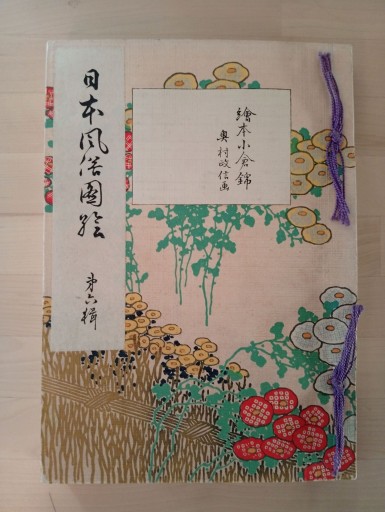 日本風俗圖絵
第六輯
繪本小倉錦
奥村政信画